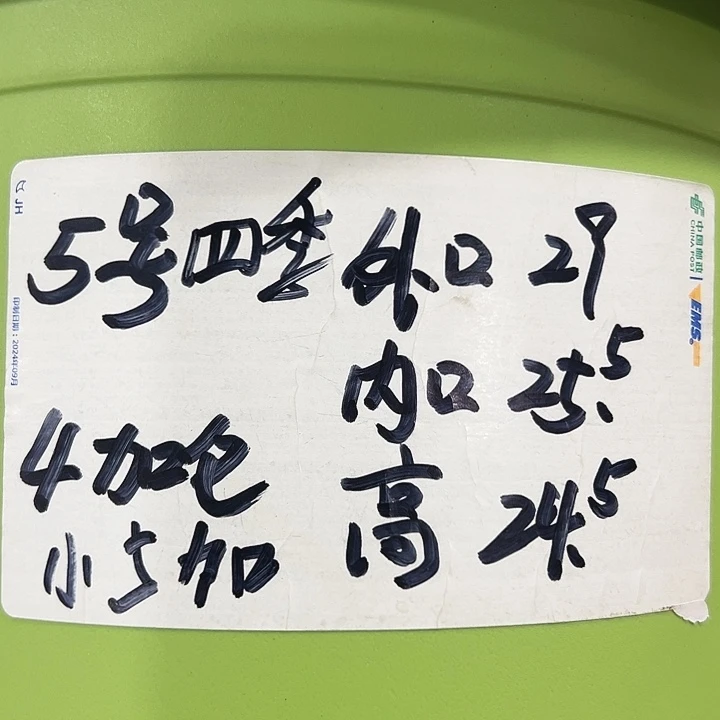 5号四季 外口 29
内口 25.5
4加仑 高 24.5
小5加
中国邮政
CHINA POST
EMS
JH
印制日期：2024年09月